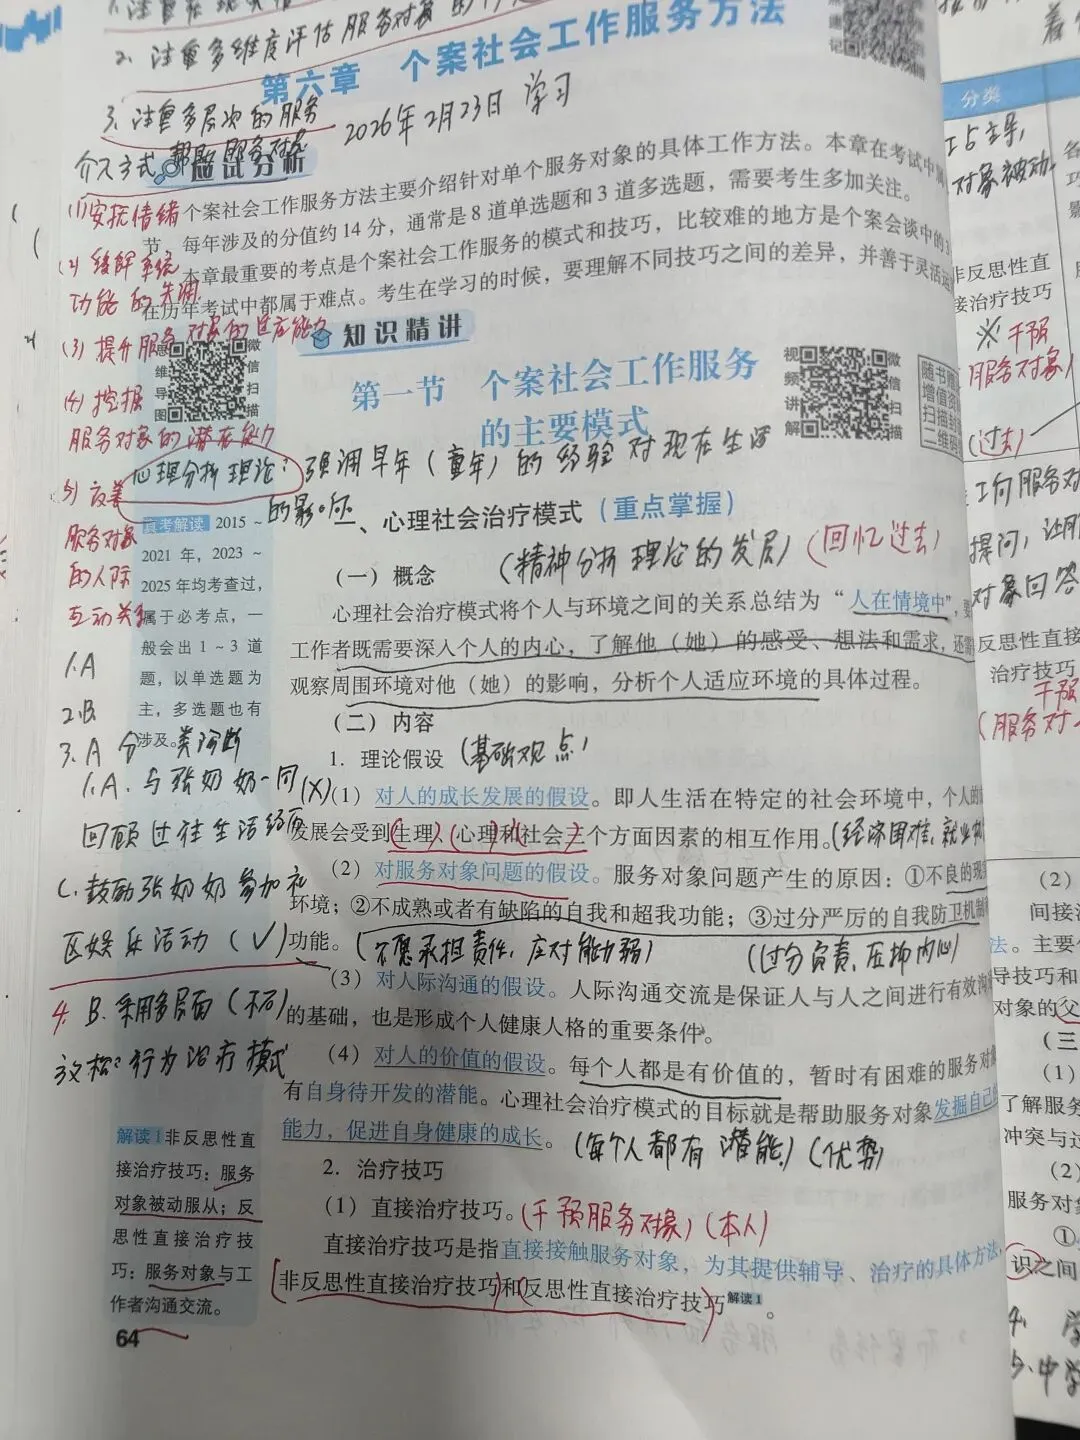 2、注重多维度评估服务对象的
第六章 个案社会工作服务方法
3、注重多层次的服务
介入方式 帮助服务对象
2026年2月23日 学习
应试分析
个案社会工作服务方法主要介绍针对单个服务对象的具体工作方法。本章在考试中
节，每年涉及的分值约 14 分，通常是 8 道单选题和 3 道多选题，需要考生多加关注。
本章最重要的考点是个案社会工作服务的模式和技巧，比较难的地方是个案会谈中的
在历年考试中都属于难点。考生在学习的时候，要理解不同技巧之间的差异，并善于灵活运
(1)安抚情绪
(2)缓解系统
功能的失调
(3)提升服务对象的适应能力
(4)挖掘
服务对象的潜在能力
(5)改善
服务对象
的人际
互动关系
知识精讲
思维导图
微信扫描
第一节 个案社会工作服务
的主要模式
视频讲解
微信扫描
随书
增值资
扫描封
二维码
心理分析理论：强调早年（童年）的经验对现在生活
的影响
真考解读 2015～
2021 年，2023～
2025 年均考查过，
属于必考点，一
般会出 1～3 道
题，以单选题为
主，多选题也有
涉及。
一、心理社会治疗模式（重点掌握）
（精神分析理论的发展）（回忆过去）
（一）概念
心理社会治疗模式将个人与环境之间的关系总结为“人在情境中”，
工作者既需要深入个人的内心，了解他（她）的感受、想法和需求，还需
观察周围环境对他（她）的影响，分析个人适应环境的具体过程。
（二）内容
1. 理论假设（基础观点）
（1）对人的成长发展的假设。即人生活在特定的社会环境中，个人的
发展会受到生理、心理和社会三个方面因素的相互作用。（经济困难，就业
（2）对服务对象问题的假设。服务对象问题产生的原因：①不良的现
环境；②不成熟或者有缺陷的自我和超我功能；③过分严厉的自我防卫机制
功能。（不愿承担责任，应对能力弱）（过分负责，压抑内心）
（3）对人际沟通的假设。人际沟通交流是保证人与人之间进行有效沟
的基础，也是形成个人健康人格的重要条件。
（4）对人的价值的假设。每个人都是有价值的，暂时有困难的服务对
有自身待开发的潜能。心理社会治疗模式的目标就是帮助服务对象发掘自己
能力，促进自身健康的成长。（每个人都有潜能）（优势）
2. 治疗技巧
（1）直接治疗技巧。（干预服务对象）（本人）
直接治疗技巧是指直接接触服务对象，为其提供辅导、治疗的具体方法，
非反思性直接治疗技巧和反思性直接治疗技巧解读1。
1.A
2.B
3.A 分类诊断
1.A.与张奶奶一同(X)
回顾过往生活经历
C.鼓励张奶奶参加社
区娱乐活动（√）
4. B.采用多层面
放松：行为治疗模式
解读 1 非反思性直
接治疗技巧：服务
对象被动服从；反
思性直接治疗技
巧：服务对象与工
作者沟通交流。
64
分类
工占主导，
对象被动
非反思性直
接治疗技巧
※干预
服务对象
（过去）
工向服务对
提问，让服
对象回答
反思性直接
治疗技巧
干预
（服务对
（2）
间接
法。主要
导技巧和
对象的父
（三
（1）
了解服务
冲突与
（2）
服务对
①
识之间